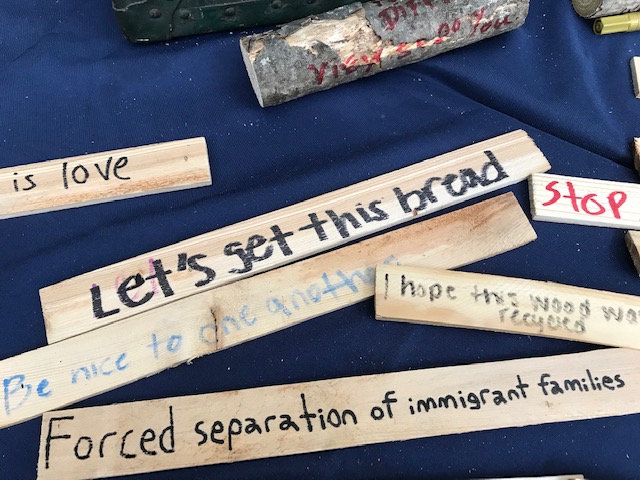 View
Do You
is love
Let's get this bread
STOP
Be nice to one another
I hope this wood
recycled
Forced separation of immigrant families